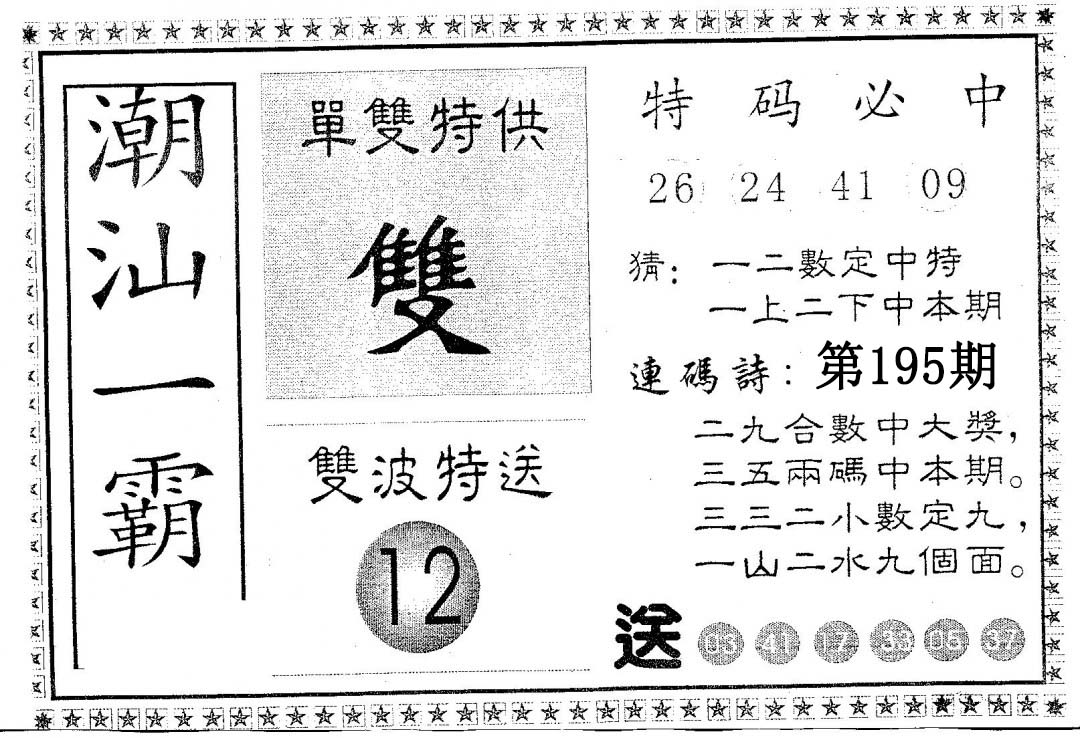 潮汕一霸
單雙特供
雙
雙波特送
12
特码必中
26 24 41 09
猜：一二數定中特
一上二下中本期
連碼詩：第195期
二九合數中大獎，
三五兩碼中本期。
三三二小數定九，
一山二水九個面。
送 03 41 17 33 05 37